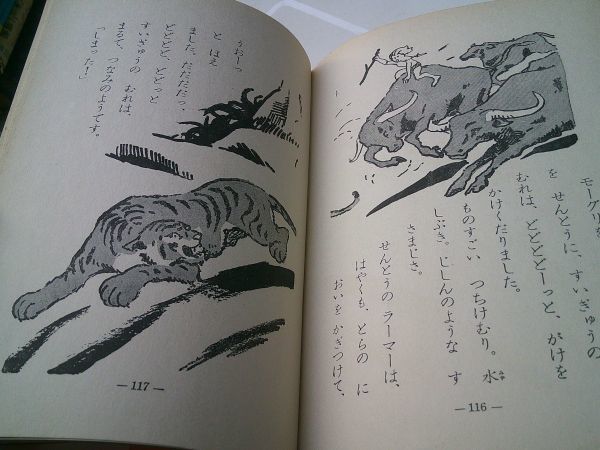 モーグリを
を せんとうに、すいぎゅうの
むれは、どどどどーっと、がけを
かけくだりました。
ものすごい つちけむり。水
しぶき。じしんのような す
さまじさ。
せんとうの ラーマーは、
はやくも、とらの に
おいを かぎつけて、
— 116 —
うおーっ
と ほえ
ました。だだだだっ、
どどどど、どどっと
すいぎゅうの むれは、
まるで、つなみのようです。
「しまった!」
— 117 —